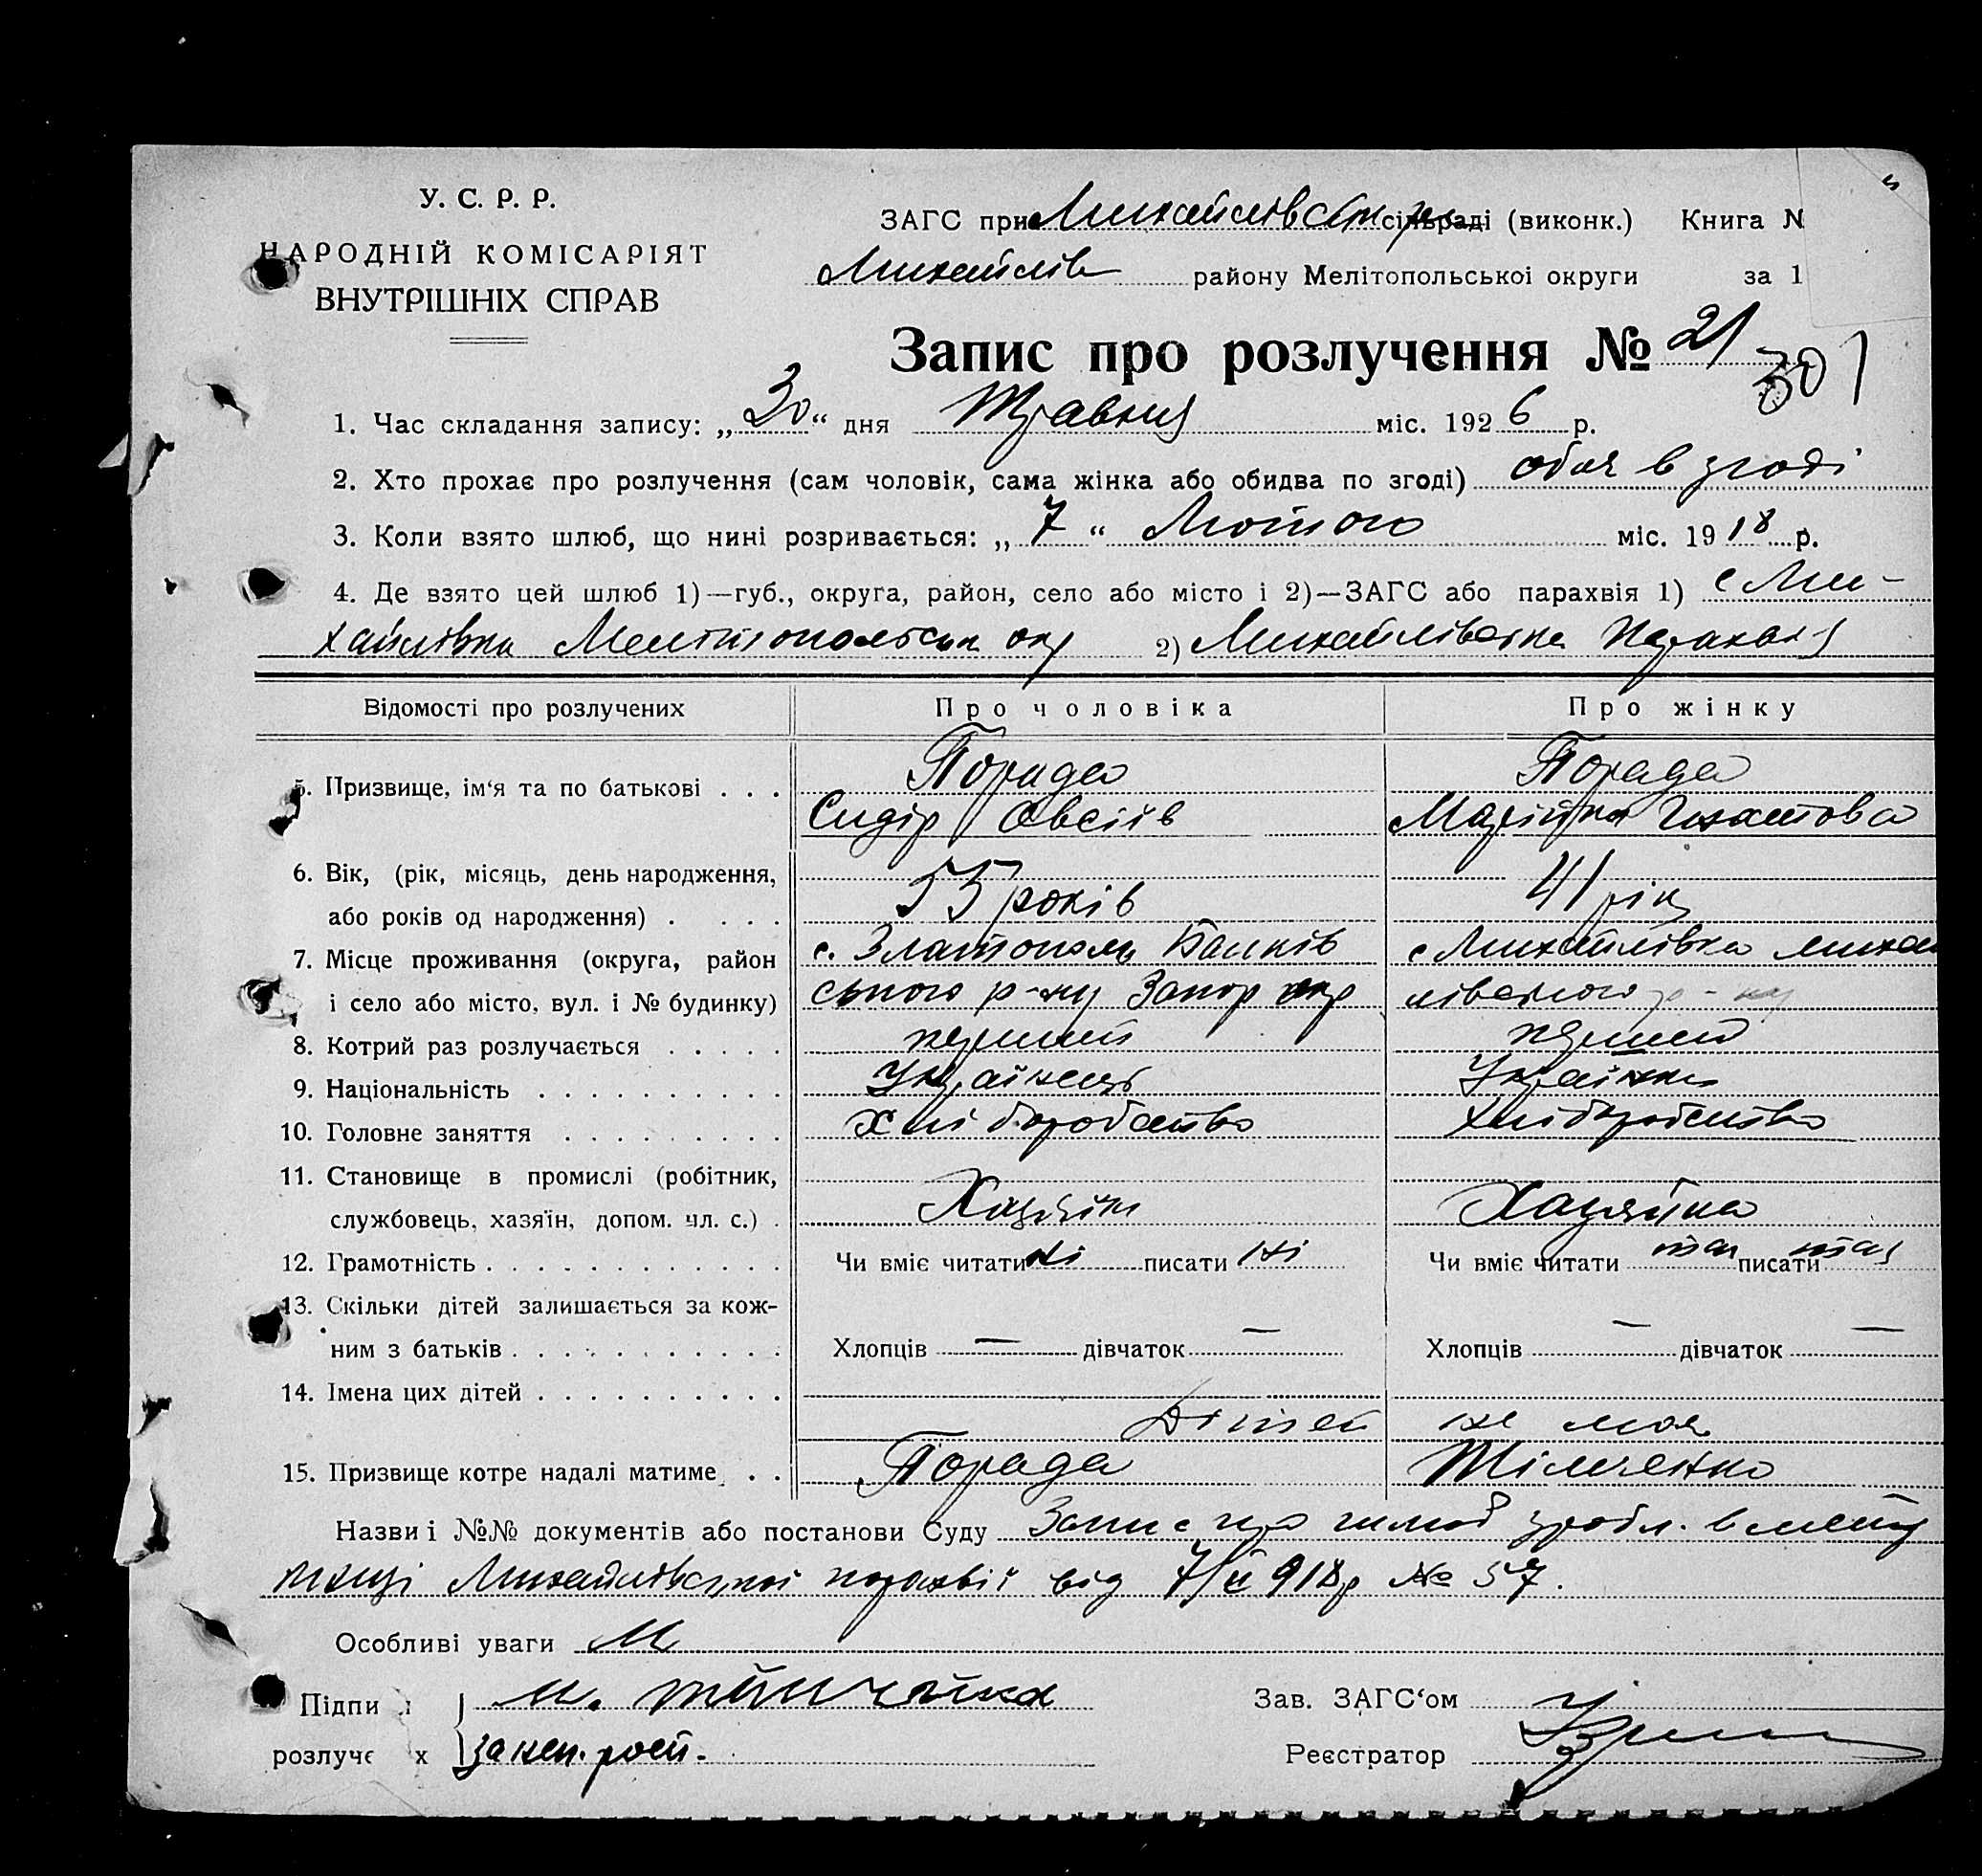 У. С. Р. Р.
НАРОДНІЙ КОМІСАРІЯТ
ВНУТРІШНІХ СПРАВ
ЗАГС при Михайлівськ сільраді (виконк.) Книга N
Михайлів району Мелітопольської округи за 1
Запис про розлучення № 21
301
1. Час складання запису: „30“ дня Травня міс. 1926 р.
2. Хто прохає про розлучення (сам чоловік, сама жінка або обидва по згоді) обоя в згоді
3. Коли взято шлюб, що нині розривається: „7“ Лютого міс. 1918 р.
4. Де взято цей шлюб 1)—губ., округа, район, село або місто і 2)—ЗАГС або парахвія 1) с Ми-
хайлівка Мелітопольськ окр 2) Михайлівська Парахвія
Відомості про розлучених Про чоловіка Про жінку
5. Призвище, ім‘я та по батькові . . . Порада Порада
Сидір Овсіїв Марійка Игнатова
6. Вік, (рік, місяць, день народження,
або років од народження) . . . . 55 років 41 рік
7. Місце проживання (округа, район с. Златополь Банків с Михайлівка михай
і село або місто, вул. і № будинку) ського р-ну Запор окр лівського р-ну
8. Котрий раз розлучається . . . . . перший перший
9. Національність . . . . . . . . . . Українець Українка
10. Головне заняття . . . . . . . . . Хліборобство Хліборобство
11. Становище в промислі (робітник,
службовець, хазяїн, допом. чл. с.) . Хазяїн Хазяйка
12. Грамотність . . . . . . . . . . . . Чи вміє читати ні писати ні Чи вміє читати так писати так
13. Скільки дітей залишається за кож-
ним з батьків . . . . . . . . . . . Хлопців — дівчаток — Хлопців — дівчаток —
14. Імена цих дітей . . . . . . . . . .
Дітей не має
15. Призвище котре надалі матиме . . Порада Тімченко
Назви і №№ документів або постанови Суду Запис про шлюб зробл. в метр
книзі Михайлівської парахвії від 7/II 918р № 57.
Особливі уваги
Підпи и М. Тімченка Зав. ЗАГС‘ом
розлуче х Реєстратор